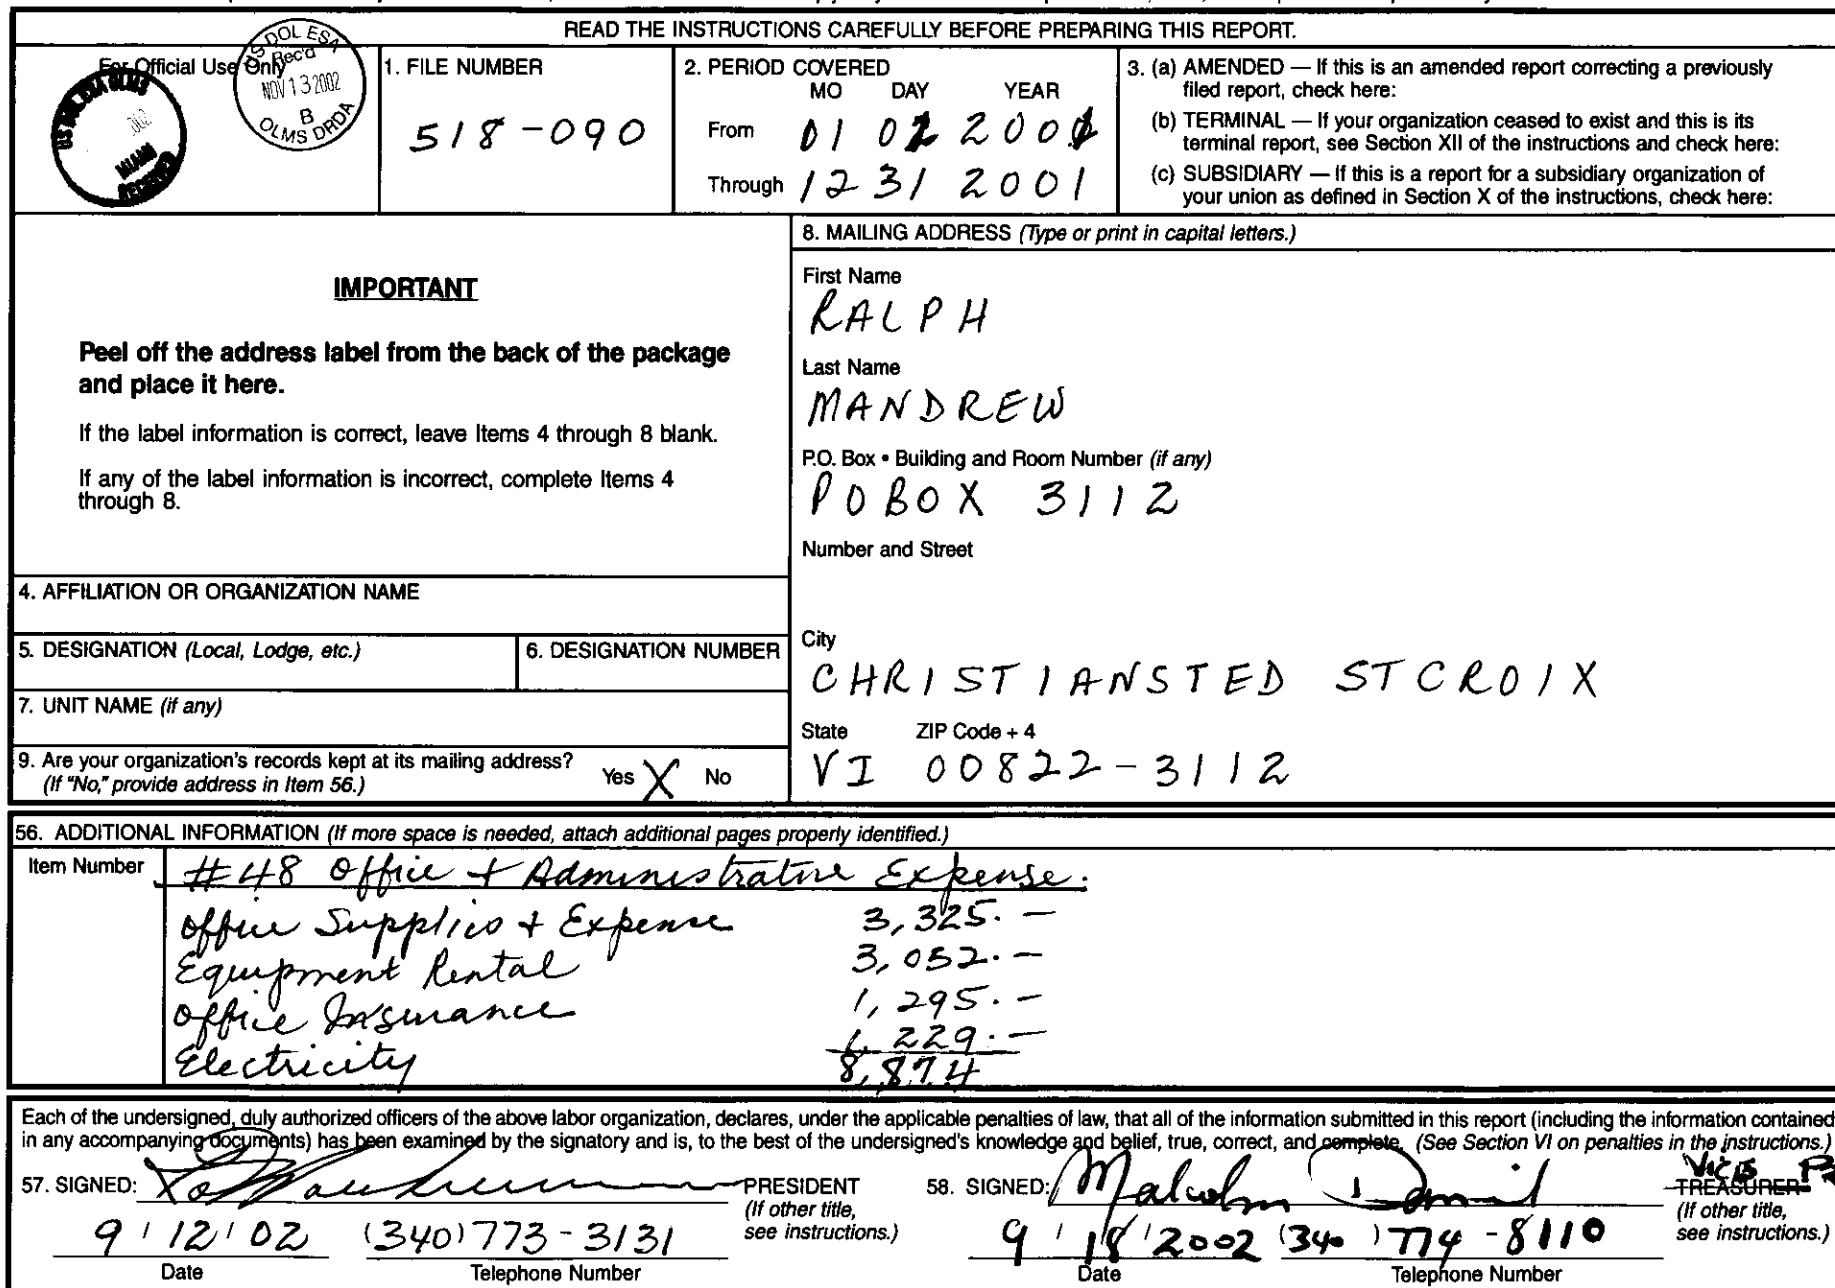 READ THE INSTRUCTIONS CAREFULLY BEFORE PREPARING THIS REPORT.
For Official Use Only
US DOL ESA
Rec'd
NOV 13 2002
B
OLMS DRDA
MIAMI
RECEIVED
1. FILE NUMBER
518-090
2. PERIOD COVERED
MO DAY YEAR
From 01 02 2001
Through 12 31 2001
3. (a) AMENDED — If this is an amended report correcting a previously
filed report, check here:
(b) TERMINAL — If your organization ceased to exist and this is its
terminal report, see Section XII of the instructions and check here:
(c) SUBSIDIARY — If this is a report for a subsidiary organization of
your union as defined in Section X of the instructions, check here:
IMPORTANT
Peel off the address label from the back of the package
and place it here.
If the label information is correct, leave Items 4 through 8 blank.
If any of the label information is incorrect, complete Items 4
through 8.
4. AFFILIATION OR ORGANIZATION NAME
5. DESIGNATION (Local, Lodge, etc.)
6. DESIGNATION NUMBER
7. UNIT NAME (if any)
9. Are your organization's records kept at its mailing address?
(If "No," provide address in Item 56.)
Yes X No
8. MAILING ADDRESS (Type or print in capital letters.)
First Name
RALPH
Last Name
MANDREW
P.O. Box • Building and Room Number (if any)
POBOX 3112
Number and Street
City
CHRISTIANSTED STCROIX
State ZIP Code + 4
VI 00822-3112
56. ADDITIONAL INFORMATION (If more space is needed, attach additional pages properly identified.)
Item Number
#48 Office + Administrative Expense.
Office Supplies + Expense 3,325.—
Equipment Rental 3,052.—
Office Insurance 1,295.—
Electricity 1,229.—
8,874
Each of the undersigned, duly authorized officers of the above labor organization, declares, under the applicable penalties of law, that all of the information submitted in this report (including the information contained
in any accompanying documents) has been examined by the signatory and is, to the best of the undersigned's knowledge and belief, true, correct, and complete. (See Section VI on penalties in the instructions.)
57. SIGNED:
PRESIDENT
(If other title,
see instructions.)
9/12/02 (340) 773-3131
Date Telephone Number
58. SIGNED: Malcolm
Vice
TREASURER
(If other title,
see instructions.)
9/18/2002 (340) 774-8110
Date Telephone Number